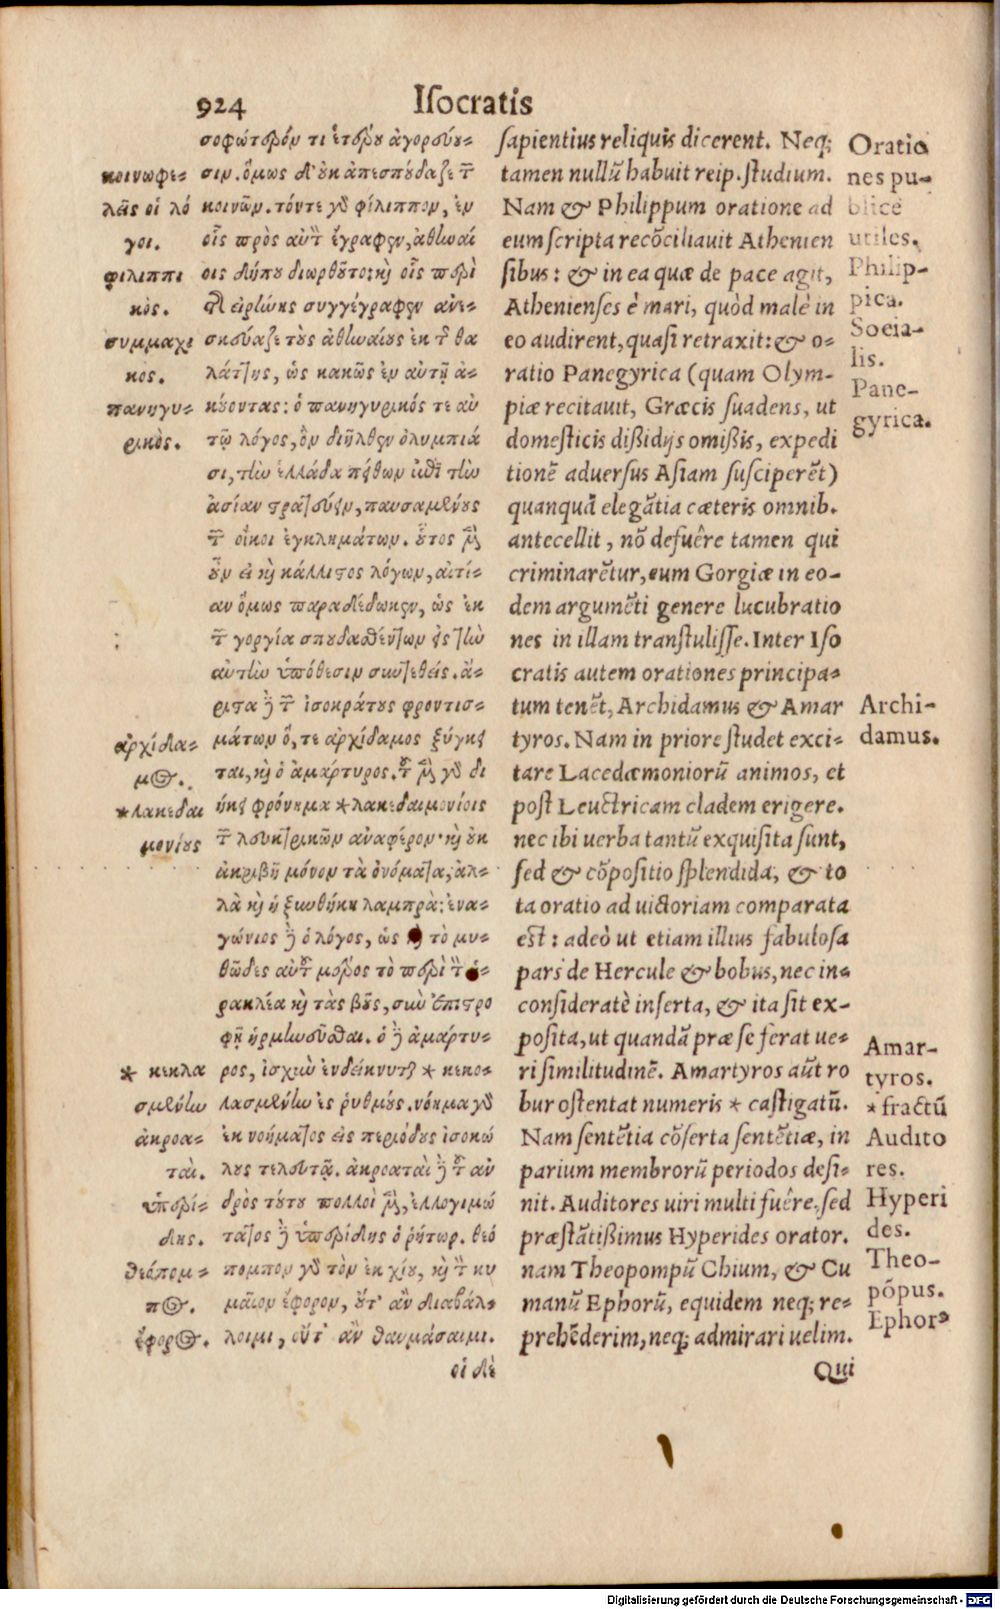 924 Isocratis
σοφώτερόν τι ἑτέρου ἀγορεύου-
σιν. ὅμως δ' οὐκ ἀπεσπούδαζε τ
κοινῶν. τόν τε γὸ φίλιππον, ἐν
οἷς πρὸς αὐτ ἔγραφεν, ἀθηναί
οις δήπου διωρθοῦτο: καὶ οἷς περὶ
τ εἰρήνης συγγέγραφεν ἀνε-
σκεύαζε τοὺς ἀθηναίους ἐκ τ θα
λάττης, ὡς κακῶς ἐν αὐτῇ ἀ-
κούοντας: ὁ πανηγυρικός τε αὐ
τῷ λόγος, ὃν διῆλθεν ὀλυμπιά
σι, τὴν ἑλλάδα πείθων ἐπὶ τὴν
ἀσίαν στρατεύειν, παυσαμένους
τ οἴκοι ἐγκλημάτων. οὗτος μὲν
οὖν εἰ καὶ κάλλιστος λόγων, αἰτί-
αν ὅμως παραδέδωκεν, ὡς ἐκ
τ γοργία σπουδασθέντων εἰς τὴν
αὐτὴν ὑπόθεσιν συντεθείς. ἄ-
ριστα δὲ τ ἰσοκράτους φροντισ-
μάτων ὅ, τε ἀρχίδαμος ξύγκει
ται, καὶ ὁ ἀμάρτυρος. τοῦ μὲν γὸ δι
ήκει φρόνημα *λακεδαιμονίοις
τ λευκτρικῶν ἀναφέρον· καὶ οὐκ
ἀκριβῆ μόνον τὰ ὀνόματα, ἀλ-
λὰ καὶ ἡ ξυνθήκη λαμπρὰ: ἐνα-
γώνιος δὲ ὁ λόγος, ὡς καὶ τὸ μυ-
θῶδες αὐτοῦ μέρος τὸ περὶ τ ἡ-
ρακλέα καὶ τὰς βοῦς, σὺν ἐπιστρο
φῇ ἡρμηνεῦσθαι. ὁ δὲ ἀμάρτυ-
ρος, ἰσχὺν ἐνδείκνυται * κεκο-
λασμένην ἐς ῥυθμούς. νόημα γὸ
ἐκ νοήματος εἰς περιόδους ἰσοκώ
λους τελευτᾷ. ἀκροαταὶ δὲ τοῦ ἀν
δρὸς τούτου πολλοὶ μὲν, ἐλλογιμώ
τατος δὲ ὑπερίδης ὁ ῥήτωρ. θεό
πομπον γὸ τὸν ἐκ χίου, καὶ τ κυ
μαῖον ἔφορον, οὔτ' ἂν διαβάλ-
λοιμι, οὔτ' ἂν θαυμάσαιμι.
οἱ δὲ
κοινωφε-
λεῖς οἱ λό
γοι.
φιλιππι
κὸς.
συμμαχι
κος.
πανηγυ-
ρικὸς.
ἀρχίδα-
μος.
*λακεδαι
μονίους
* κεκλα
σμένην
ἀκροα-
ταὶ.
ὑπερί-
δης.
θεόπομ-
πος.
ἔφορος.
sapientius reliquis dicerent. Neq;
tamen nullũ habuit reip. studium.
Nam & Philippum oratione ad
eum scripta recõciliauit Athenien
sibus: & in ea quæ de pace agit,
Athenienses è mari, quòd malè in
eo audirent, quasi retraxit: & o-
ratio Panegyrica (quam Olym-
piæ recitauit, Græcis suadens, ut
domesticis dißidijs omißis, expedi
tionẽ aduersus Asiam susciperẽt)
quanquã elegãtia cæteris omnib.
antecellit, nõ defuêre tamen qui
criminarẽtur, eum Gorgiæ in eo-
dem argumẽti genere lucubratio
nes in illam transtulisse. Inter Iso
cratis autem orationes principa-
tum tenẽt, Archidamus & Amar
tyros. Nam in priore studet exci-
tare Lacedæmoniorũ animos, et
post Leuctricam cladem erigere.
nec ibi uerba tantũ exquisita sunt,
sed & cõpositio splendida, & to
ta oratio ad uictoriam comparata
est: adeò ut etiam illius fabulosa
pars de Hercule & bobus, nec in-
consideratè inserta, & ita sit ex-
posita, ut quandã præ se ferat ue-
ri similitudinẽ. Amartyros aũt ro
bur ostentat numeris * castigatũ.
Nam sentẽtia cõserta sentẽtiæ, in
parium membrorũ periodos desi-
nit. Auditores uiri multi fuêre, sed
præstãtißimus Hyperides orator.
nam Theopompũ Chium, & Cu
manũ Ephorũ, equidem neq; re-
prehẽderim, neq; admirari uelim.
Qui
Oratio
nes pu-
blicè
utiles.
Philip-
pica.
Socia-
lis.
Pane-
gyrica.
Archi-
damus.
Amar-
tyros.
* fractũ
Audito
res.
Hyperi
des.
Theo-
põpus.
Ephorꝰ
Digitalisierung gefördert durch die Deutsche Forschungsgemeinschaft - DFG